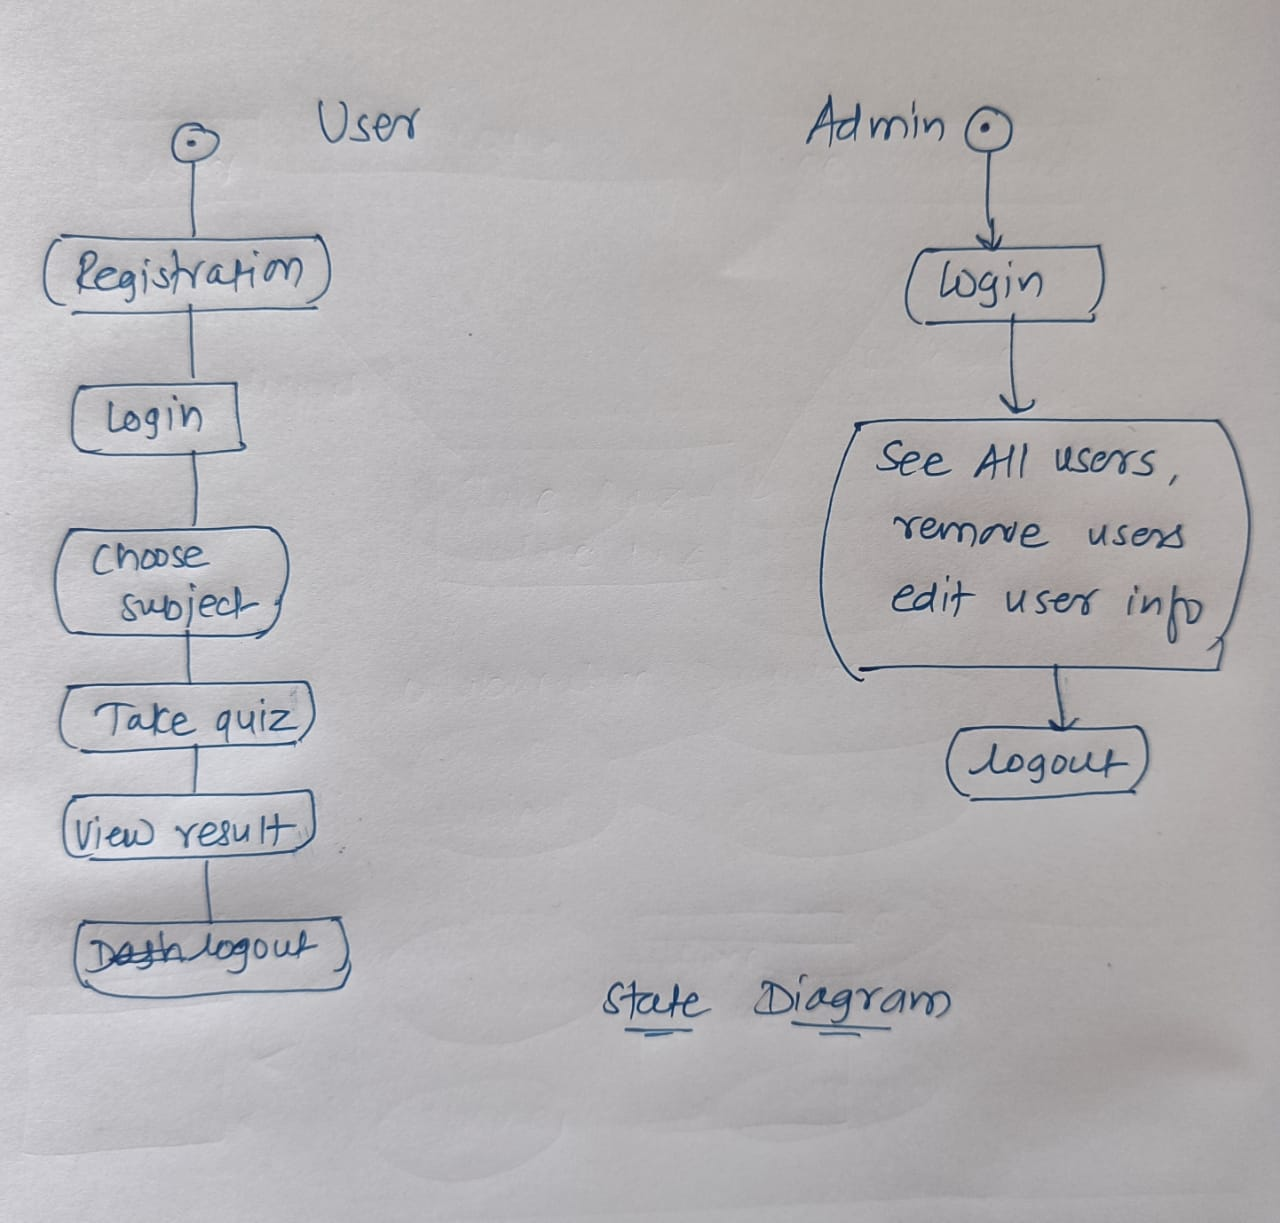 User
Registration
Login
Choose
subject
Take quiz
View result
logout
Admin
Login
See All users,
remove users
edit user info
logout
State Diagram